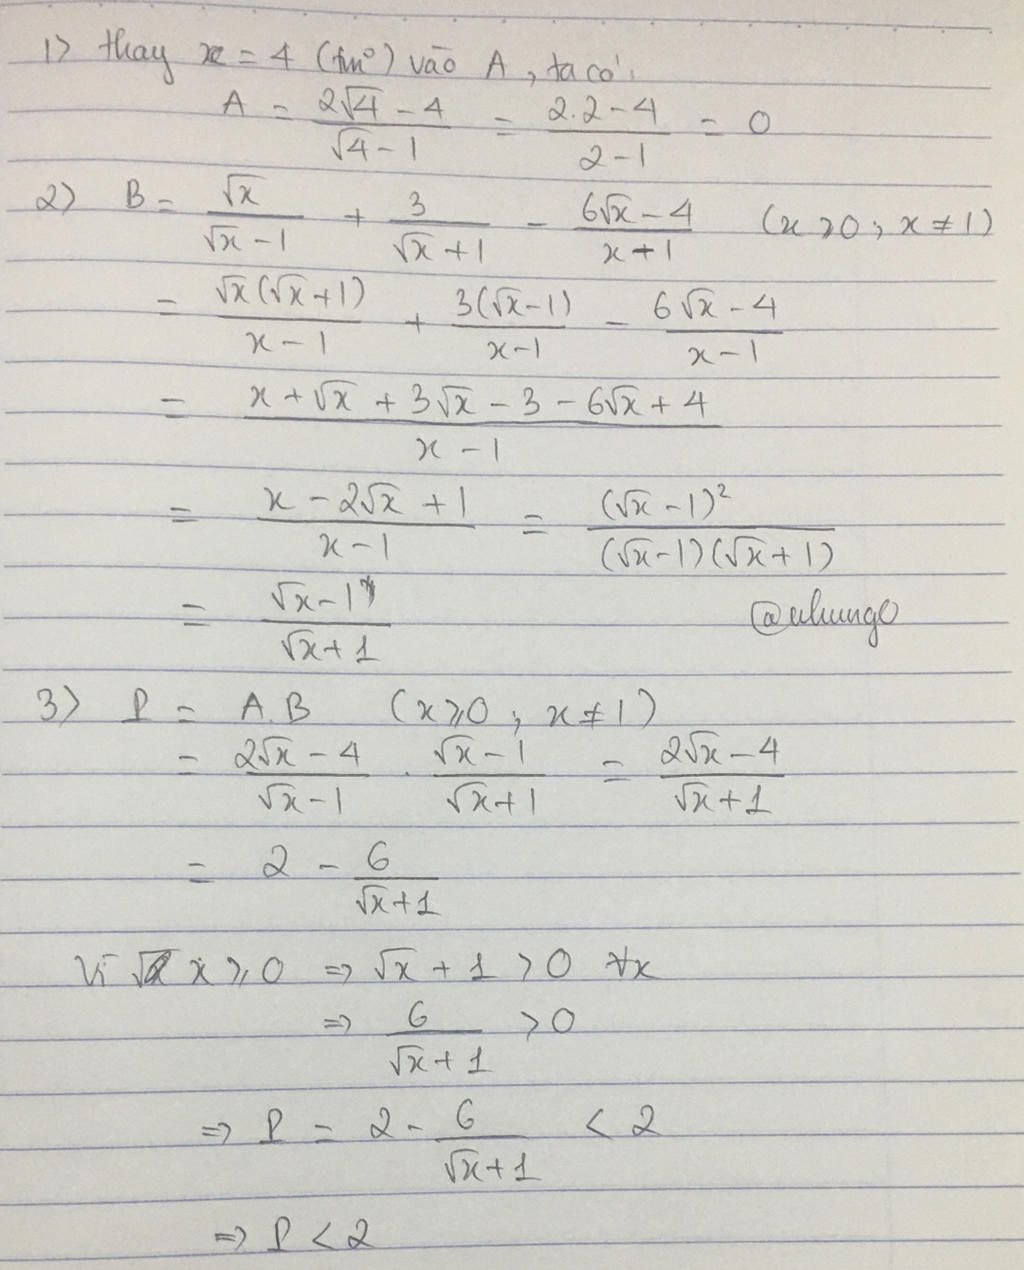 1) thay x = 4 (tmđ) vào A, ta có:
A = (2√4 - 4)/(√4 - 1) = (2.2 - 4)/(2 - 1) = 0
2) B = √x/(√x - 1) + 3/(√x + 1) - (6√x - 4)/(x + 1) (x ≥ 0; x ≠ 1)
= √x(√x + 1)/(x - 1) + 3(√x - 1)/(x - 1) - (6√x - 4)/(x - 1)
= (x + √x + 3√x - 3 - 6√x + 4)/(x - 1)
= (x - 2√x + 1)/(x - 1) = (√x - 1)²/((√x - 1)(√x + 1))
= (√x - 1)/(√x + 1)
3) P = A.B (x ≥ 0; x ≠ 1)
= (2√x - 4)/(√x - 1) . (√x - 1)/(√x + 1) = (2√x - 4)/(√x + 1)
= 2 - 6/(√x + 1)
Vì x ≥ 0 ⇒ √x + 1 > 0 ∀x
⇒ 6/(√x + 1) > 0
⇒ P = 2 - 6/(√x + 1) < 2
⇒ P < 2